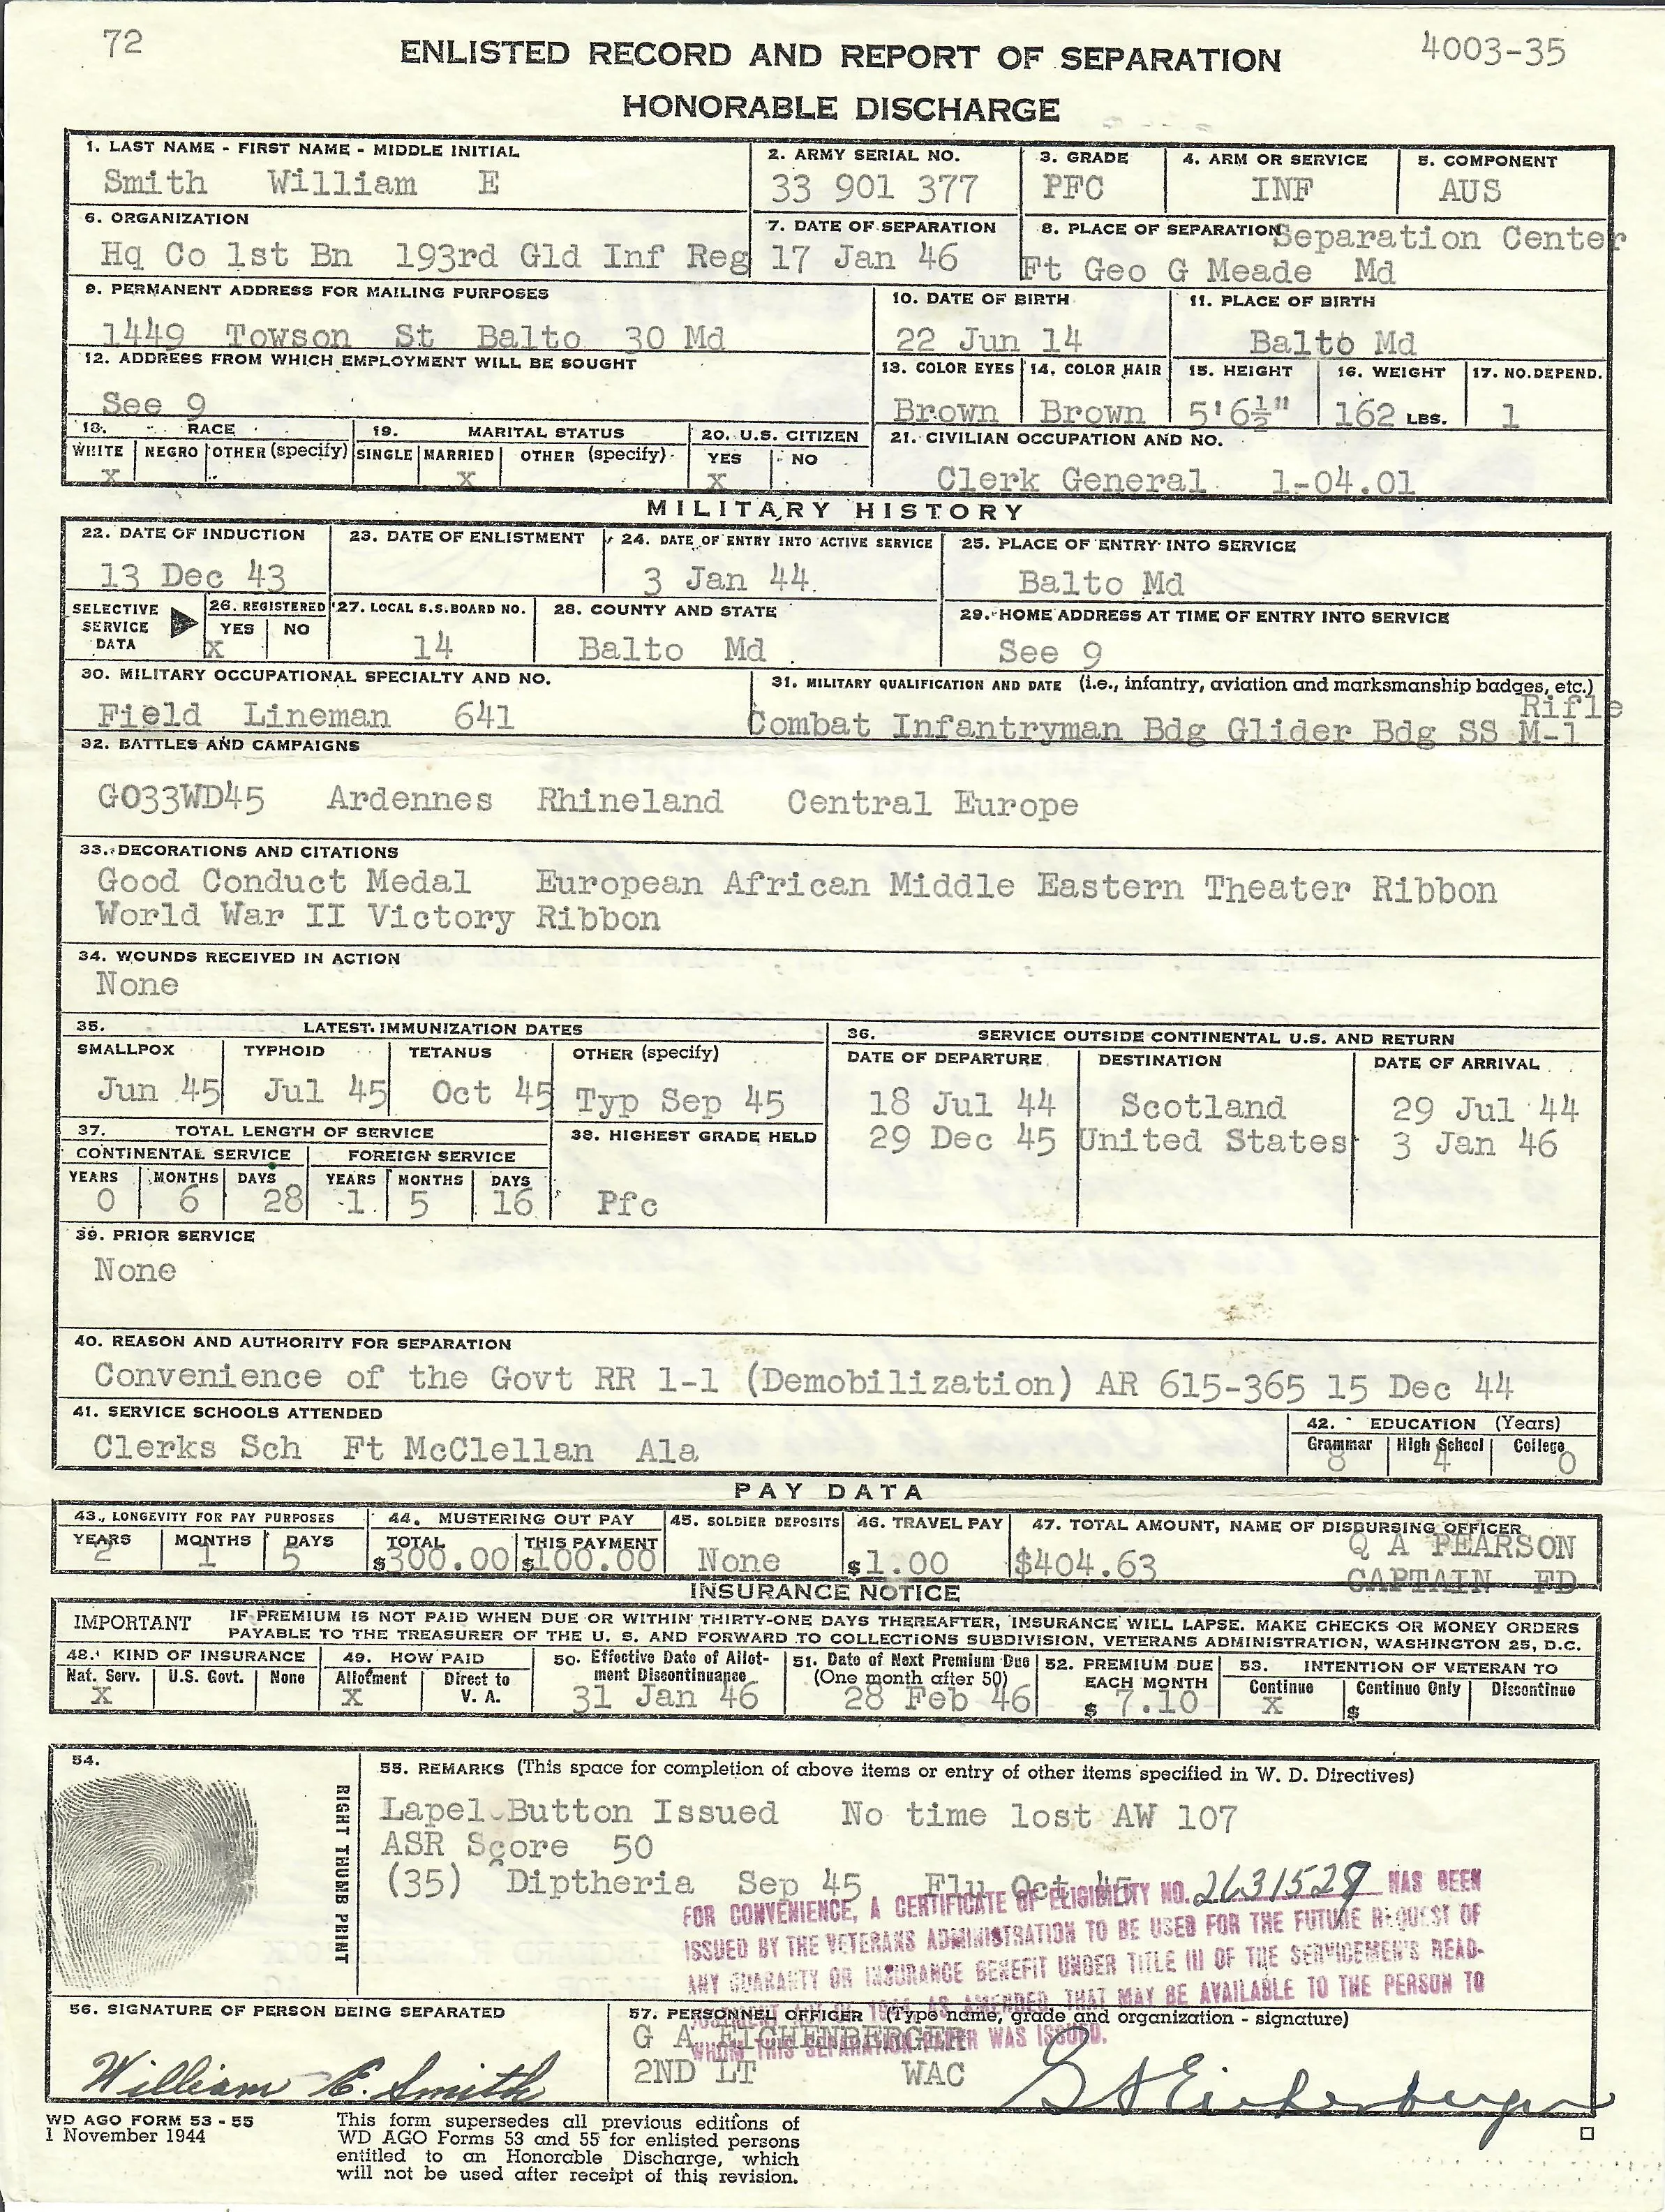 72
4003-35
ENLISTED RECORD AND REPORT OF SEPARATION
HONORABLE DISCHARGE
1. LAST NAME - FIRST NAME - MIDDLE INITIAL
Smith William E
2. ARMY SERIAL NO.
33 901 377
3. GRADE
PFC
4. ARM OR SERVICE
INF
5. COMPONENT
AUS
6. ORGANIZATION
Hq Co 1st Bn 193rd Gld Inf Reg
7. DATE OF SEPARATION
17 Jan 46
8. PLACE OF SEPARATION Separation Center
Ft Geo G Meade Md
9. PERMANENT ADDRESS FOR MAILING PURPOSES
1449 Towson St Balto 30 Md
10. DATE OF BIRTH
22 Jun 14
11. PLACE OF BIRTH
Balto Md
12. ADDRESS FROM WHICH EMPLOYMENT WILL BE SOUGHT
See 9
13. COLOR EYES
Brown
14. COLOR HAIR
Brown
15. HEIGHT
5'6½"
16. WEIGHT
162 LBS.
17. NO. DEPEND.
1
18. RACE
WHITE NEGRO OTHER (specify)
x
19. MARITAL STATUS
SINGLE MARRIED OTHER (specify)
x
20. U.S. CITIZEN
YES NO
x
21. CIVILIAN OCCUPATION AND NO.
Clerk General 1-04.01
MILITARY HISTORY
22. DATE OF INDUCTION
13 Dec 43
23. DATE OF ENLISTMENT
24. DATE OF ENTRY INTO ACTIVE SERVICE
3 Jan 44
25. PLACE OF ENTRY INTO SERVICE
Balto Md
SELECTIVE
SERVICE
DATA
26. REGISTERED
YES NO
x
27. LOCAL S.S. BOARD NO.
14
28. COUNTY AND STATE
Balto Md
29. HOME ADDRESS AT TIME OF ENTRY INTO SERVICE
See 9
30. MILITARY OCCUPATIONAL SPECIALTY AND NO.
Field Lineman 641
31. MILITARY QUALIFICATION AND DATE (i.e., infantry, aviation and marksmanship badges, etc.)
Rifle
Combat Infantryman Bdg Glider Bdg SS M-1
32. BATTLES AND CAMPAIGNS
GO33WD45 Ardennes Rhineland Central Europe
33. DECORATIONS AND CITATIONS
Good Conduct Medal European African Middle Eastern Theater Ribbon
World War II Victory Ribbon
34. WOUNDS RECEIVED IN ACTION
None
35. LATEST IMMUNIZATION DATES
SMALLPOX TYPHOID TETANUS OTHER (specify)
Jun 45 Jul 45 Oct 45 Typ Sep 45
36. SERVICE OUTSIDE CONTINENTAL U.S. AND RETURN
DATE OF DEPARTURE DESTINATION DATE OF ARRIVAL
18 Jul 44 Scotland 29 Jul 44
29 Dec 45 United States 3 Jan 46
37. TOTAL LENGTH OF SERVICE
CONTINENTAL SERVICE FOREIGN SERVICE
YEARS MONTHS DAYS YEARS MONTHS DAYS
0 6 28 1 5 16
38. HIGHEST GRADE HELD
Pfc
39. PRIOR SERVICE
None
40. REASON AND AUTHORITY FOR SEPARATION
Convenience of the Govt RR 1-1 (Demobilization) AR 615-365 15 Dec 44
41. SERVICE SCHOOLS ATTENDED
Clerks Sch Ft McClellan Ala
42. EDUCATION (Years)
Grammar High School College
8 4 0
PAY DATA
43. LONGEVITY FOR PAY PURPOSES
YEARS MONTHS DAYS
2 1 5
44. MUSTERING OUT PAY
TOTAL THIS PAYMENT
$300.00 $100.00
45. SOLDIER DEPOSITS
None
46. TRAVEL PAY
$1.00
47. TOTAL AMOUNT, NAME OF DISBURSING OFFICER
$404.63 Q A PEARSON
CAPTAIN FD
INSURANCE NOTICE
IMPORTANT
IF PREMIUM IS NOT PAID WHEN DUE OR WITHIN THIRTY-ONE DAYS THEREAFTER, INSURANCE WILL LAPSE. MAKE CHECKS OR MONEY ORDERS
PAYABLE TO THE TREASURER OF THE U. S. AND FORWARD TO COLLECTIONS SUBDIVISION, VETERANS ADMINISTRATION, WASHINGTON 25, D.C.
48. KIND OF INSURANCE
Nat. Serv. U.S. Govt. None
x
49. HOW PAID
Allotment Direct to
V. A.
x
50. Effective Date of Allot-
ment Discontinuance
31 Jan 46
51. Date of Next Premium Due
(One month after 50)
28 Feb 46
52. PREMIUM DUE
EACH MONTH
$ 7.10
53. INTENTION OF VETERAN TO
Continue Continue Only Discontinue
x $
54.
RIGHT THUMB PRINT
55. REMARKS (This space for completion of above items or entry of other items specified in W. D. Directives)
Lapel Button Issued No time lost AW 107
ASR Score 50
(35) Diptheria Sep 45 Flu Oct 45
FOR CONVENIENCE, A CERTIFICATE OF ELIGIBILITY NO. 2631529 HAS BEEN
ISSUED BY THE VETERANS ADMINISTRATION TO BE USED FOR THE FUTURE REQUEST OF
ANY GUARANTY OR INSURANCE BENEFIT UNDER TITLE III OF THE SERVICEMEN'S READ-
JUSTMENT ACT OF 1944 AS AMENDED, THAT MAY BE AVAILABLE TO THE PERSON TO
WHOM THIS SEPARATION PAPER WAS ISSUED.
56. SIGNATURE OF PERSON BEING SEPARATED
William E. Smith
57. PERSONNEL OFFICER (Type name, grade and organization - signature)
G A EICHENBERGER
2ND LT WAC
G A Eichenberger
WD AGO FORM 53 - 55
1 November 1944
This form supersedes all previous editions of
WD AGO Forms 53 and 55 for enlisted persons
entitled to an Honorable Discharge, which
will not be used after receipt of this revision.